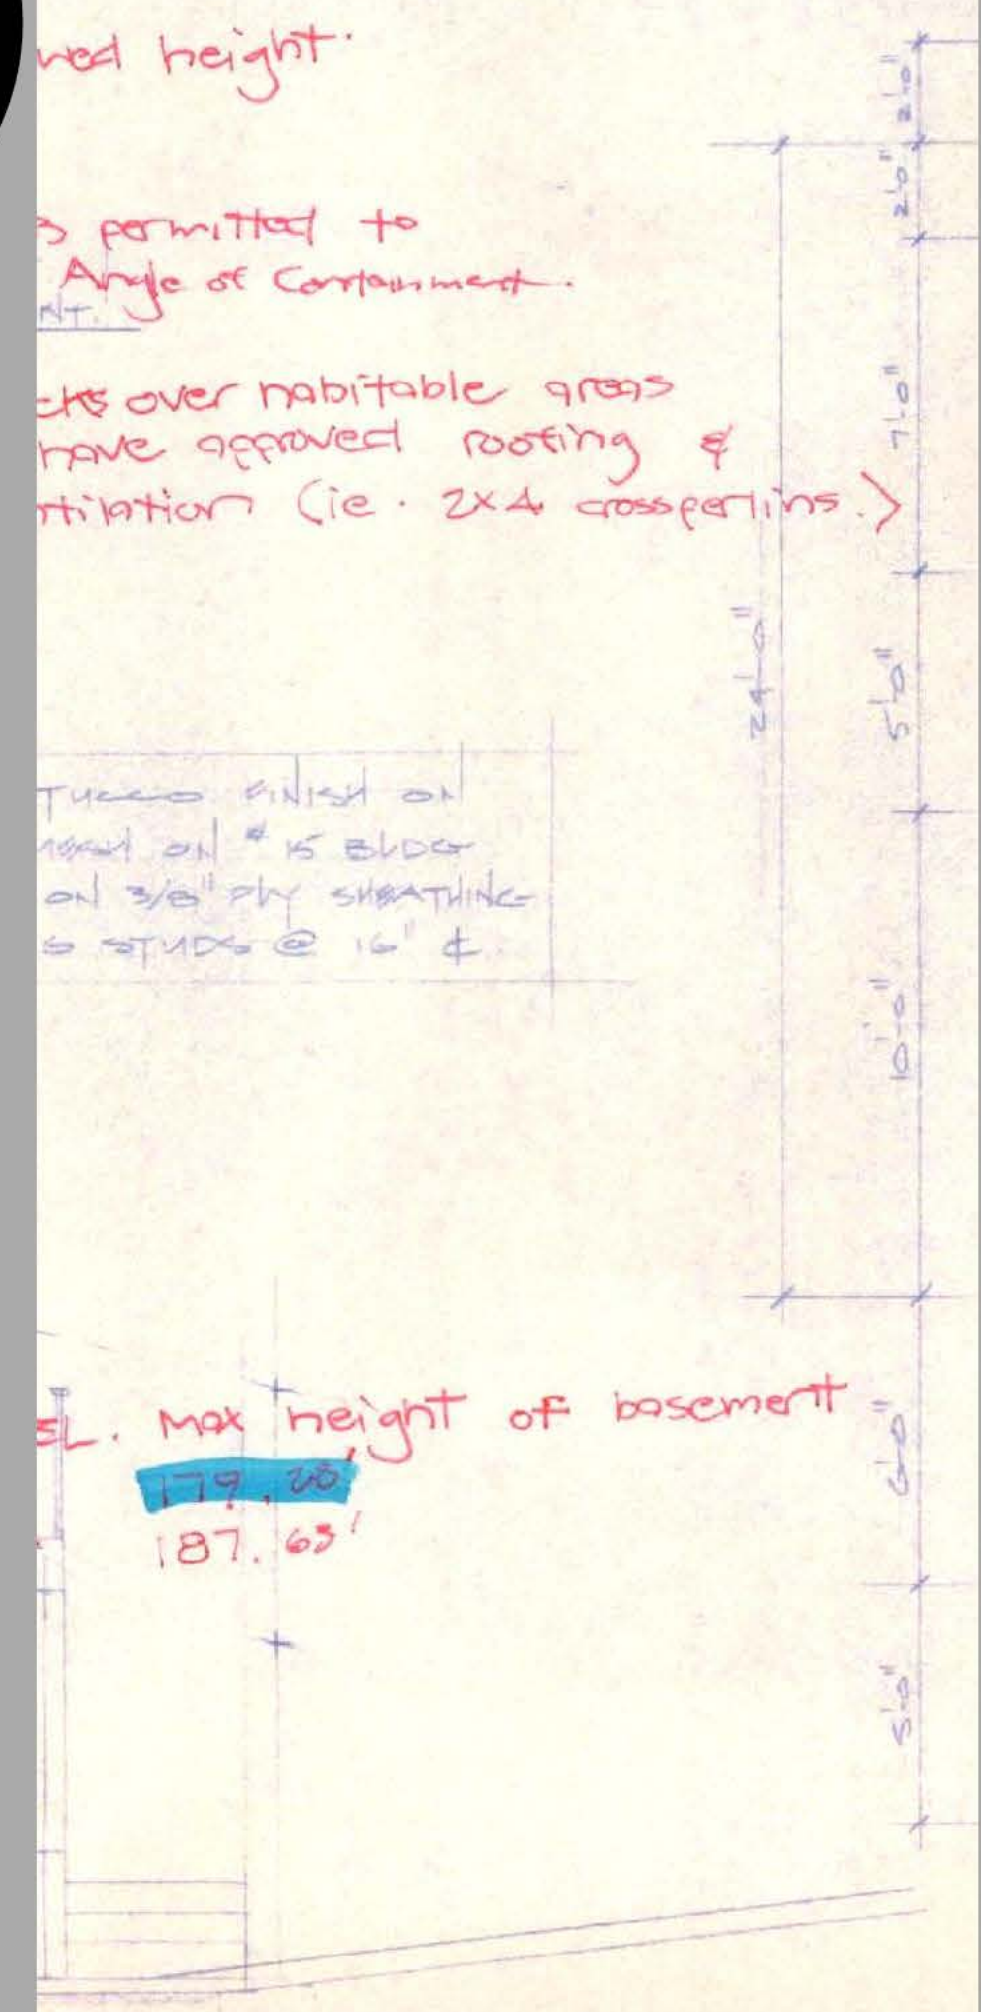 wed height.
permitted to
Angle of Containment.
NT.
cks over habitable areas
have approved roofing &
tilation (ie. 2x4 crossperlins.)
TUCCO FINISH ON
MESH ON #15 BLDG
ON 3/8" PLY SHEATHING
6 STUDS @ 16" ¢
EL. Max height of basement
179.28'
187.63'
24'-0"
2'-0"
2'-0"
7'-0"
5'-0"
10'-0"
6'-0"
5'-0"